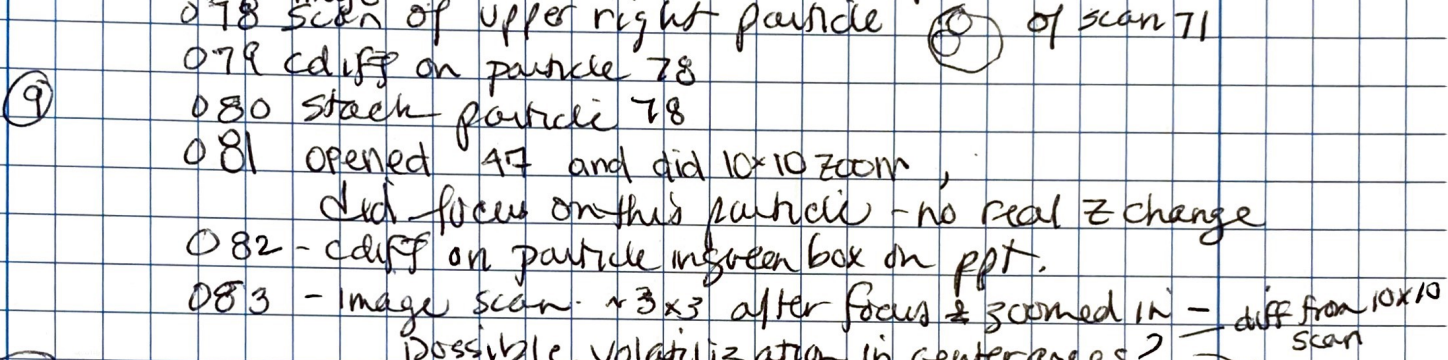 078 scan of upper right particle of scan 71
079 cdiff on particle 78
9
080 stack particle 78
081 opened 47 and did 10x10 zoom,
did focus on this particle - no real z change
082 - cdiff on particle in green box on ppt.
083 - Image scan. ~3x3 after focus & zoomed in - diff from 10x10
scan
possible volatilization in center ?